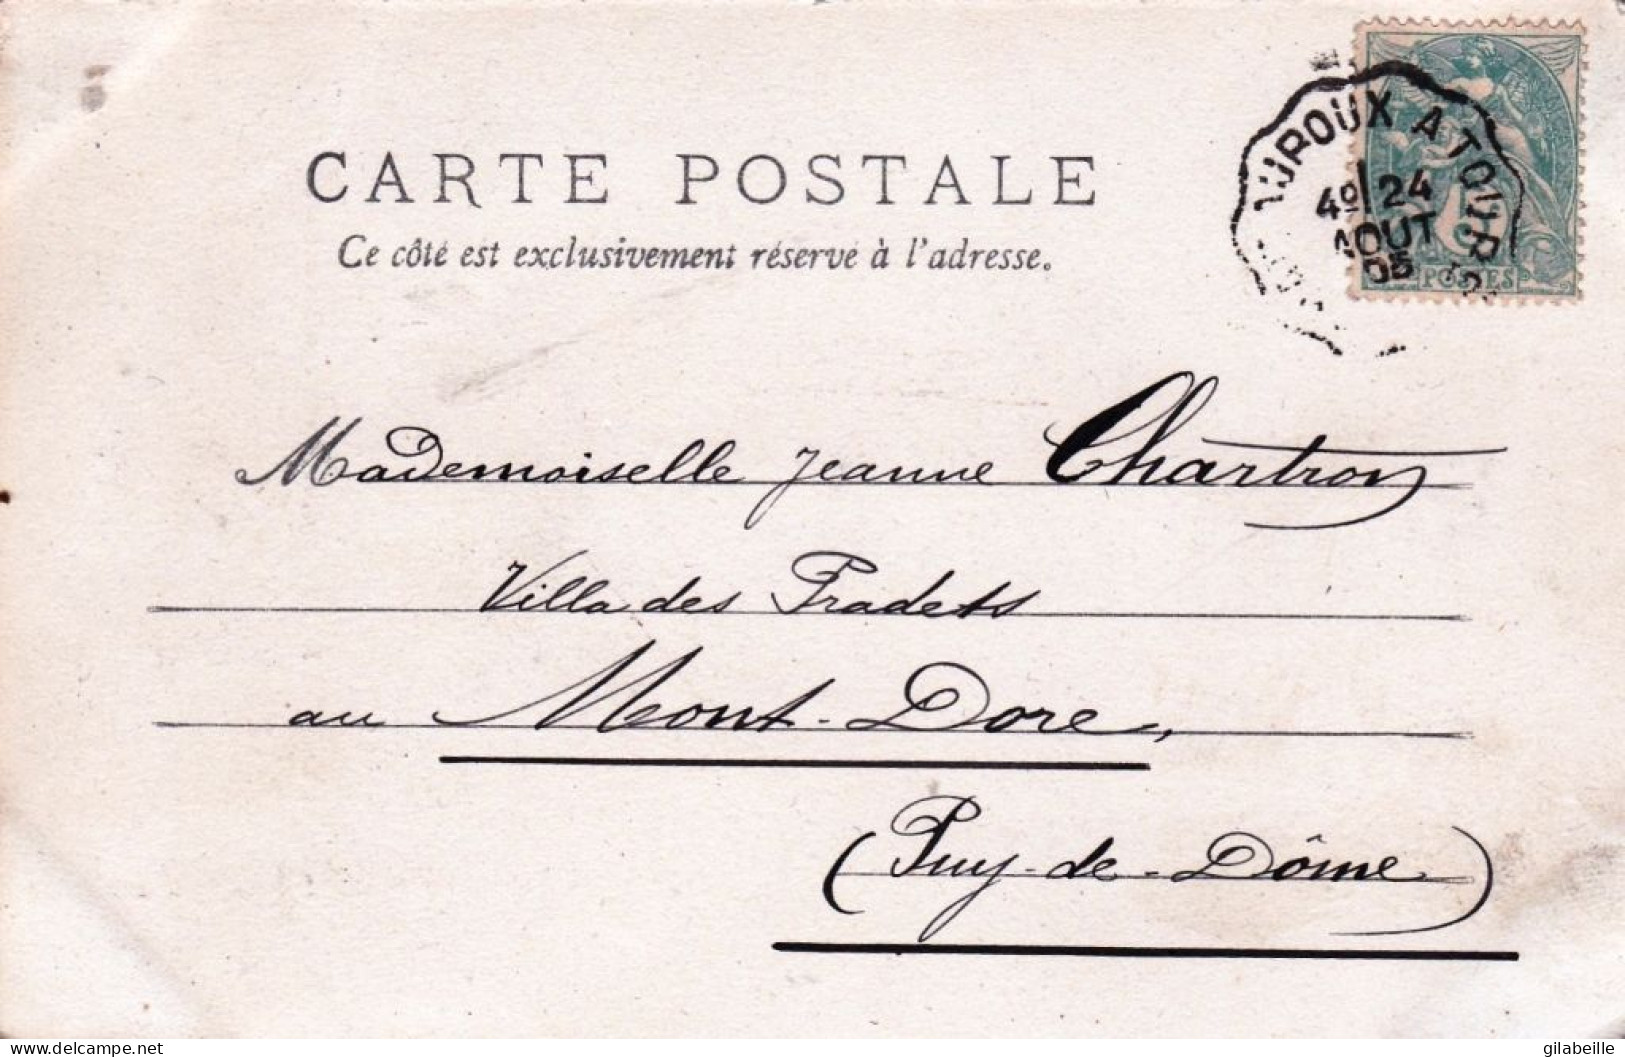 CARTE POSTALE
Ce côté est exclusivement réservé à l'adresse.
A TOURS
4º 24
AOUT
05
5
POSTES
Mademoiselle Jeanne Chartron
Villa des Pradets
au Mont-Dore,
(Puy-de-Dôme)
©delcampe.net
gilabeille